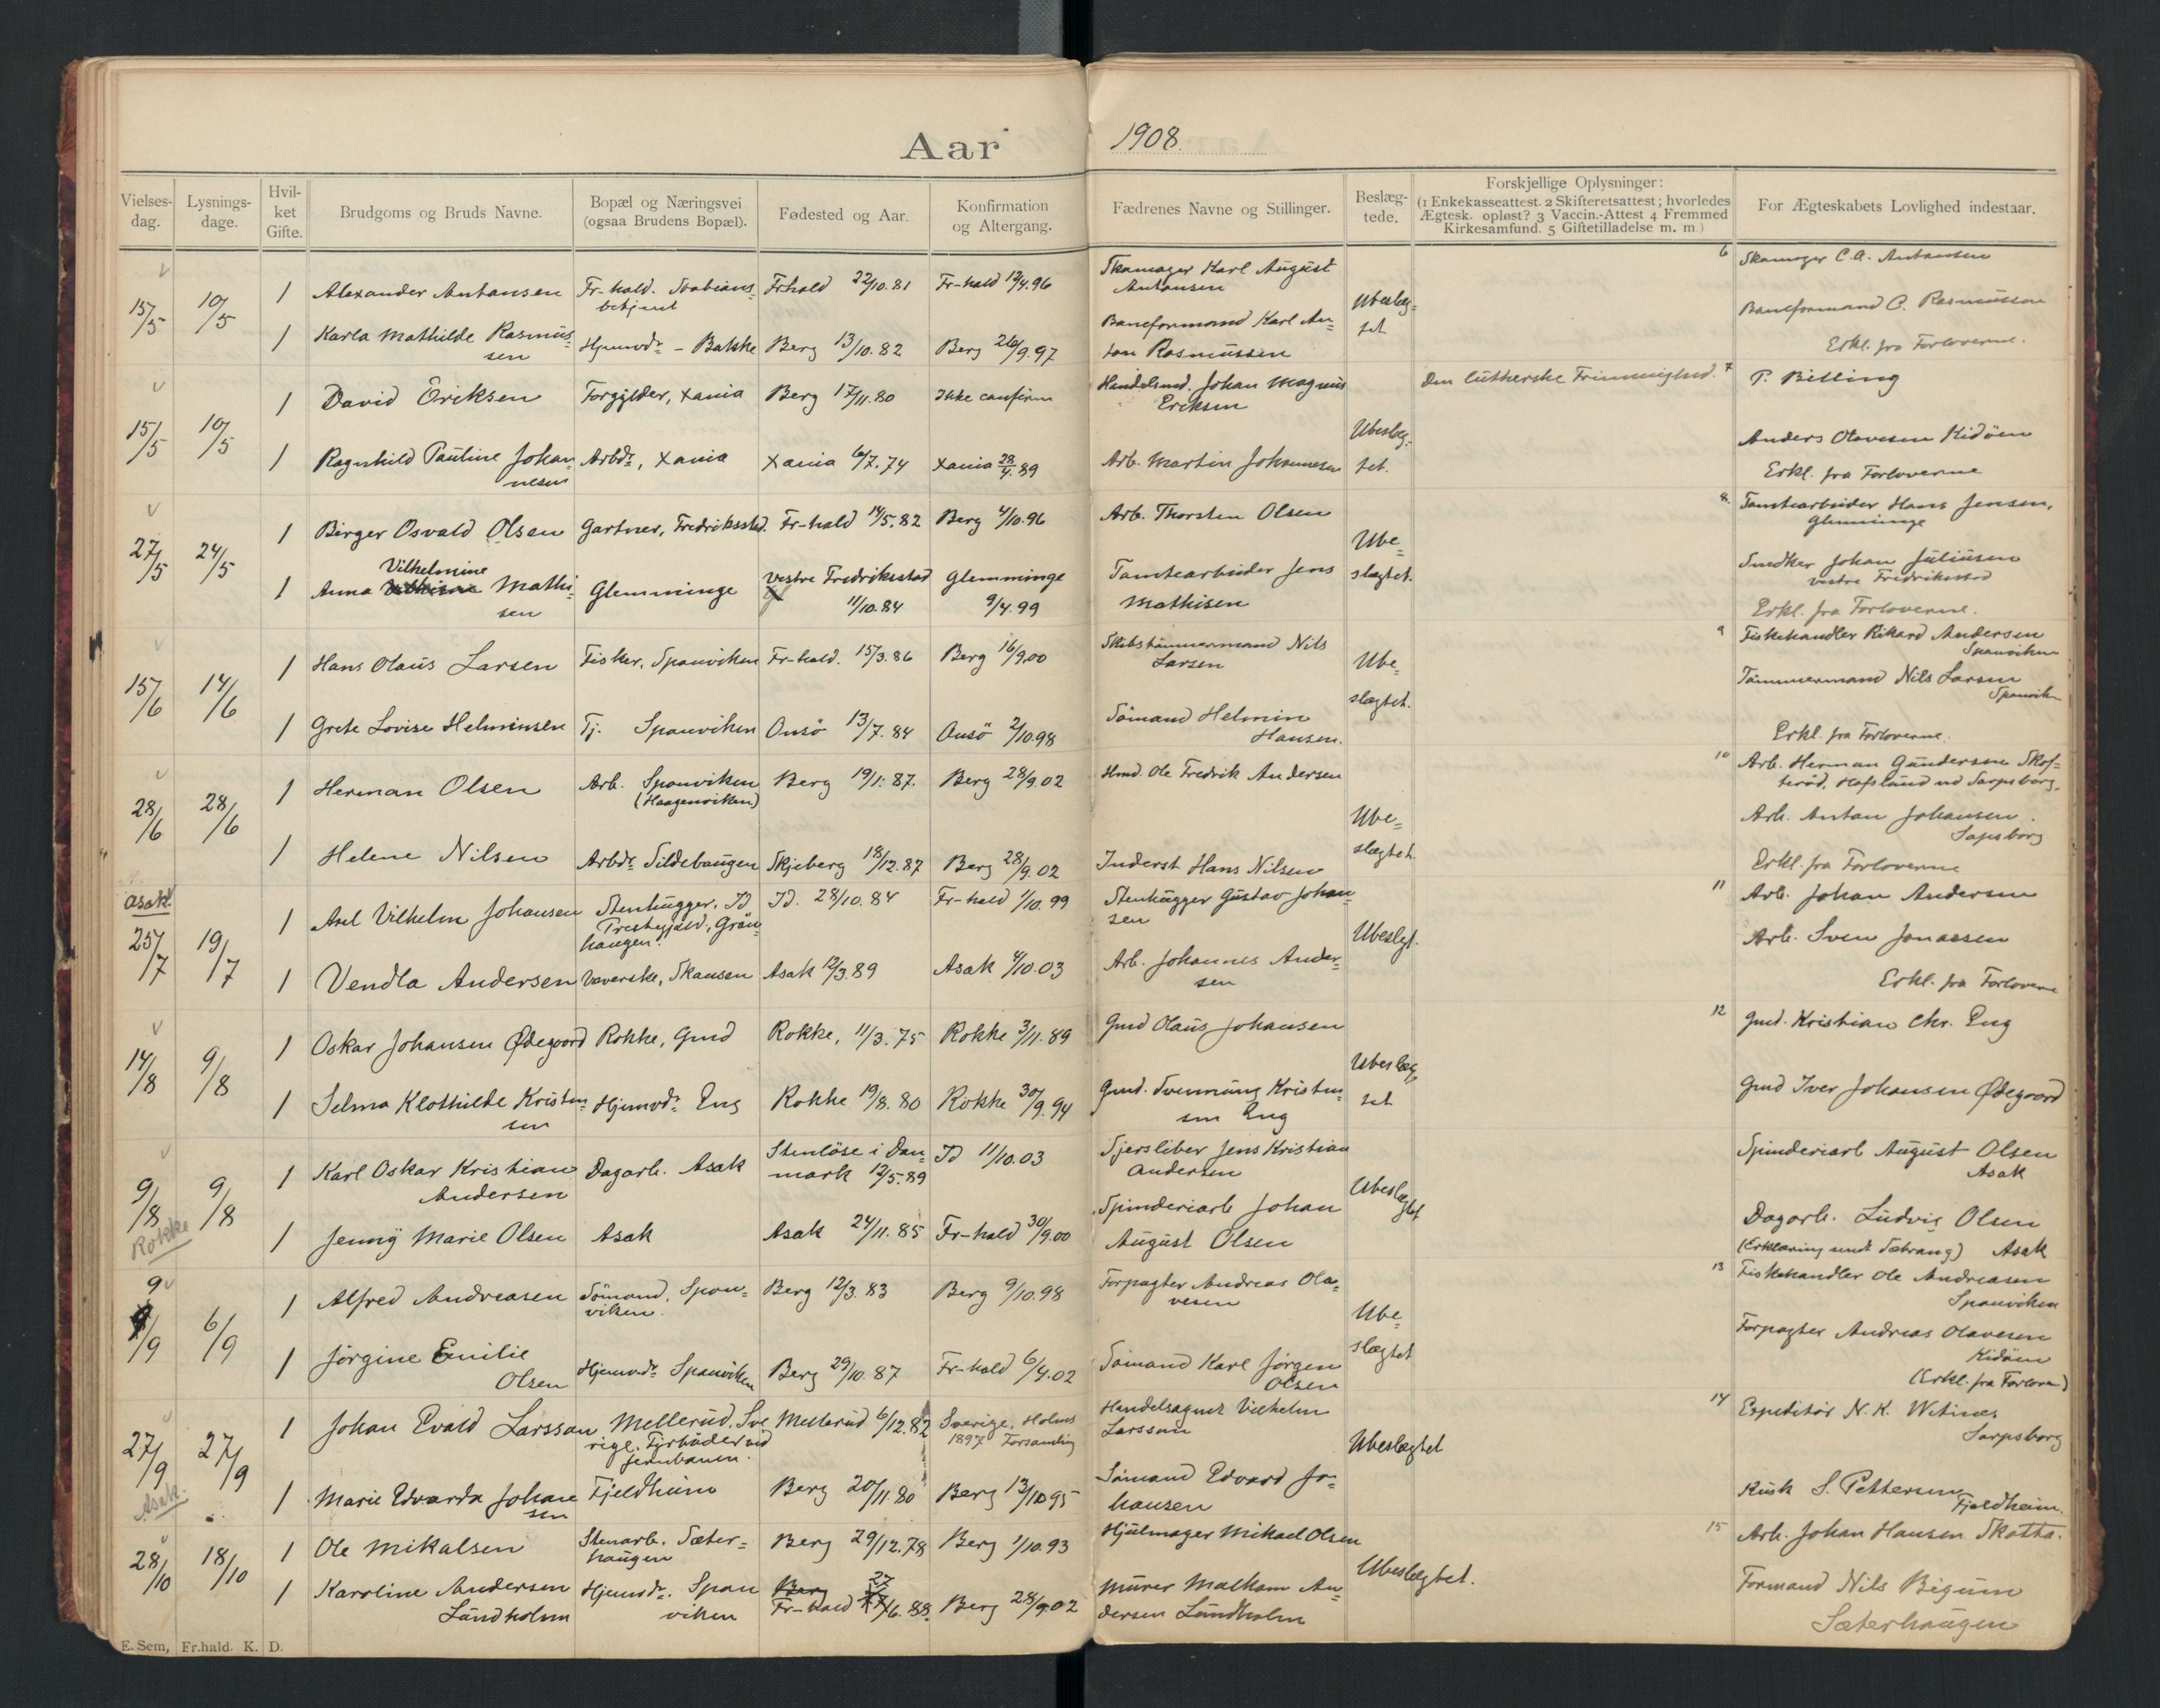 Aar 1908.
Vielses-dag.
Lysnings-dage.
Hvil-ket Gifte.
Brudgoms og Bruds Navne.
Bopæl og Næringsvei
(ogsaa Brudens Bopæl).
Fødested og Aar.
Konfirmation
og Altergang.
Fædrenes Navne og Stillinger.
Beslæg-tede.
Forskjellige Oplysninger:
(1 Enkekasseattest. 2 Skifteretsattest; hvorledes
Ægtesk. opløst? 3 Vaccin.-Attest 4 Fremmed
Kirkesamfund. 5 Giftetilladelse m. m.)
For Ægteskabets Lovlighed indestaar.
15/5 10/5
1 Alexander Antonsen Fr-hald. betjent Frhald 22/10.81 Fr-hald 12/4.96 Karl August Antonsen 6 C. A. Antonsen
1 Karla Mathilde Rasmus=
sen Hjemvdr. - Bakke Berg 13/10.82 Berg 26/9.97 Baneformand Karl An=
ton Rasmussen Ubeslæg=
tet Baneformand C. Rasmussen
Erkl. fra Forloverne.
15/5 10/5
1 David Eriksen Forgylder, Xania Berg 17/11.80 Ikke confirm Handelsmd. Johan Magnus
Eriksen Den lutherske Frimenighed. 7 P. Billing
1 Ragnhild Pauline Johan
nesen Arbdr., Xania Xania 6/7.74 Xania 28/4.89 Arb. Martin Johannesen Ubeslæg=
tet. Anders Olavesen Kidöen
Erkl. fra Forloverne
27/5 24/5
1 Birger Osvald Olsen Gartner, Fredriksstad. Fr-hald 14/5.82 Berg 4/10.96 Arb. Thorsten Olsen 8. Tomtearbeider Hans Jensen,
Glemminge
1 Anna Vilhelmine Mathi=
sen Glemminge Vestre Fredriksstad
11/10.84 Glemminge
9/4.99 Tomtearbeider Jens
Mathisen Ube=
slægtet. Snedker Johan Juliusen
vestre Fredriksstad
Erkl. fra Forloverne.
15/6 14/6
1 Hans Olaus Larsen Fisker, Sponviken Fr-hald. 15/3.86 Berg 16/9.00 Skibstömmermand Nils
Larsen 9 Fiskehandler Rikard Andersen
Sponviken
1 Grete Lovise Helminsen Tj. Sponviken Onsö 13/7.84 Onsö 2/10.98 Sömand Helmin
Hansen. Ube=
slægtet. Tömmermand Nils Larsen
Sponvik
Erkl. fra Forloverne.
28/6 28/6
1 Herman Olsen Arb. Sponviken
(Haagenviken) Berg 19/1.87. Berg 28/9.02 Hmd. Ole Fredrik Andersen 10 Arb. Herman Gundersen Skof=
teröd, Hafslund ved Sarpsborg.
1 Helene Nilsen Arbdr. Sildebaugen Skjeberg 18/12.87 Berg 28/9.02 Inderst Hans Nilsen Ube=
slægtet. Arb. Anton Johansen.
Sapsborg
Erkl. fra Forloverne
Asak
25/7 19/7
1 Axel Vilhelm Johansen Stenhugger, Id
Prestegjeld, Grön
haugen. Id. 28/10.84 Fr-hald 1/10.99 Stenhugger Gustav Johan=
sen 11 Arb. Johan Andersen
1 Vendla Andersen Væverske, Skansen Asak 12/3.89 Asak 4/10.03 Arb. Johannes Ander=
sen Ubeslgt. Arb. Sven Jonassen
Erkl. fra Forlovere
14/8 9/8
1 Oskar Johansen Ødegaard Rokke, Gmd Rokke, 11/3.75 Rokke 3/11.89 Gmd Olaus Johansen 12 Gmd. Kristian Chr. Eng
1 Selma Klothilde Kristen=
sen Hjemvdr. Eng Rokke 19/8.80 Rokke 30/9.94 Gmd. Svenning Kristen=
sen Eng Ubeslæg
tet Gmd Iver Johansen Ødegaard
9/8 9/8
Rokke
1 Karl Oskar Kristian
Andersen Dagarb. Asak Stenlöse i Dan=
mark 12/5.89 Id 11/10.03 Jens Kristian
Andersen Spinderiarb August Olsen
Asak
1 Jenny Marie Olsen Asak Asak 24/11.85 Fr-hald 30/9.00 Spinderiarb Johan
August Olsen Ubeslægtet Dagarb. Ludvig Olsen
Asak
9/9 6/9
1 Alfred Andreasen Sömand, Spon=
viken. Berg 12/3.83 Berg 9/10.98 Forpagter Andreas Ola=
vesen 13 Fiskehandler Ole Andreasen
Sponviken
1 Jörgine Emilie
Olsen Hjemvdr. Sponviken Berg 29/10.87 Fr-hald 6/4.02 Sömand Karl Jörgen
Olsen Ube=
slægtet Forpagter Andreas Olavesen
Kidöen
(Erkl. fra Forlover)
27/9 27/9
Asak.
1 Johan Evald Larsson Mellerud, Sve
rige. Fyrböder ved
Jernbanen. Mellerud 6/12.82 Sverige, Holms
1897 Forsamling Handelsagent Vilhelm
Larsson 14 Expeditör N. K.
Sarpsborg
1 Marie Edvarda Johan
sen Fjeldheim Berg 20/11.80 Berg 13/10.95 Sömand Edvard Jo=
hansen Ubeslægtet Kusk S. Pettersen
Fjeldheim.
28/10 18/10
1 Ole Mikalsen Stenarb. Sæter=
haugen Berg 29/12.78 Berg 1/10.93 Hjulmager Mikael Olsen 15 Arb. Johan Hansen Skotta.
1 Karoline Andersen
Lundholm Hjemvdr. Spon
viken Berg
Fr-hald 27/6.88. Berg 28/9.02 Murer Malkom An
dersen Lundholm Ubeslægtet. Formand Nils Begum
Sæterhaugen
E. Sem, Fr.hald. K. D.